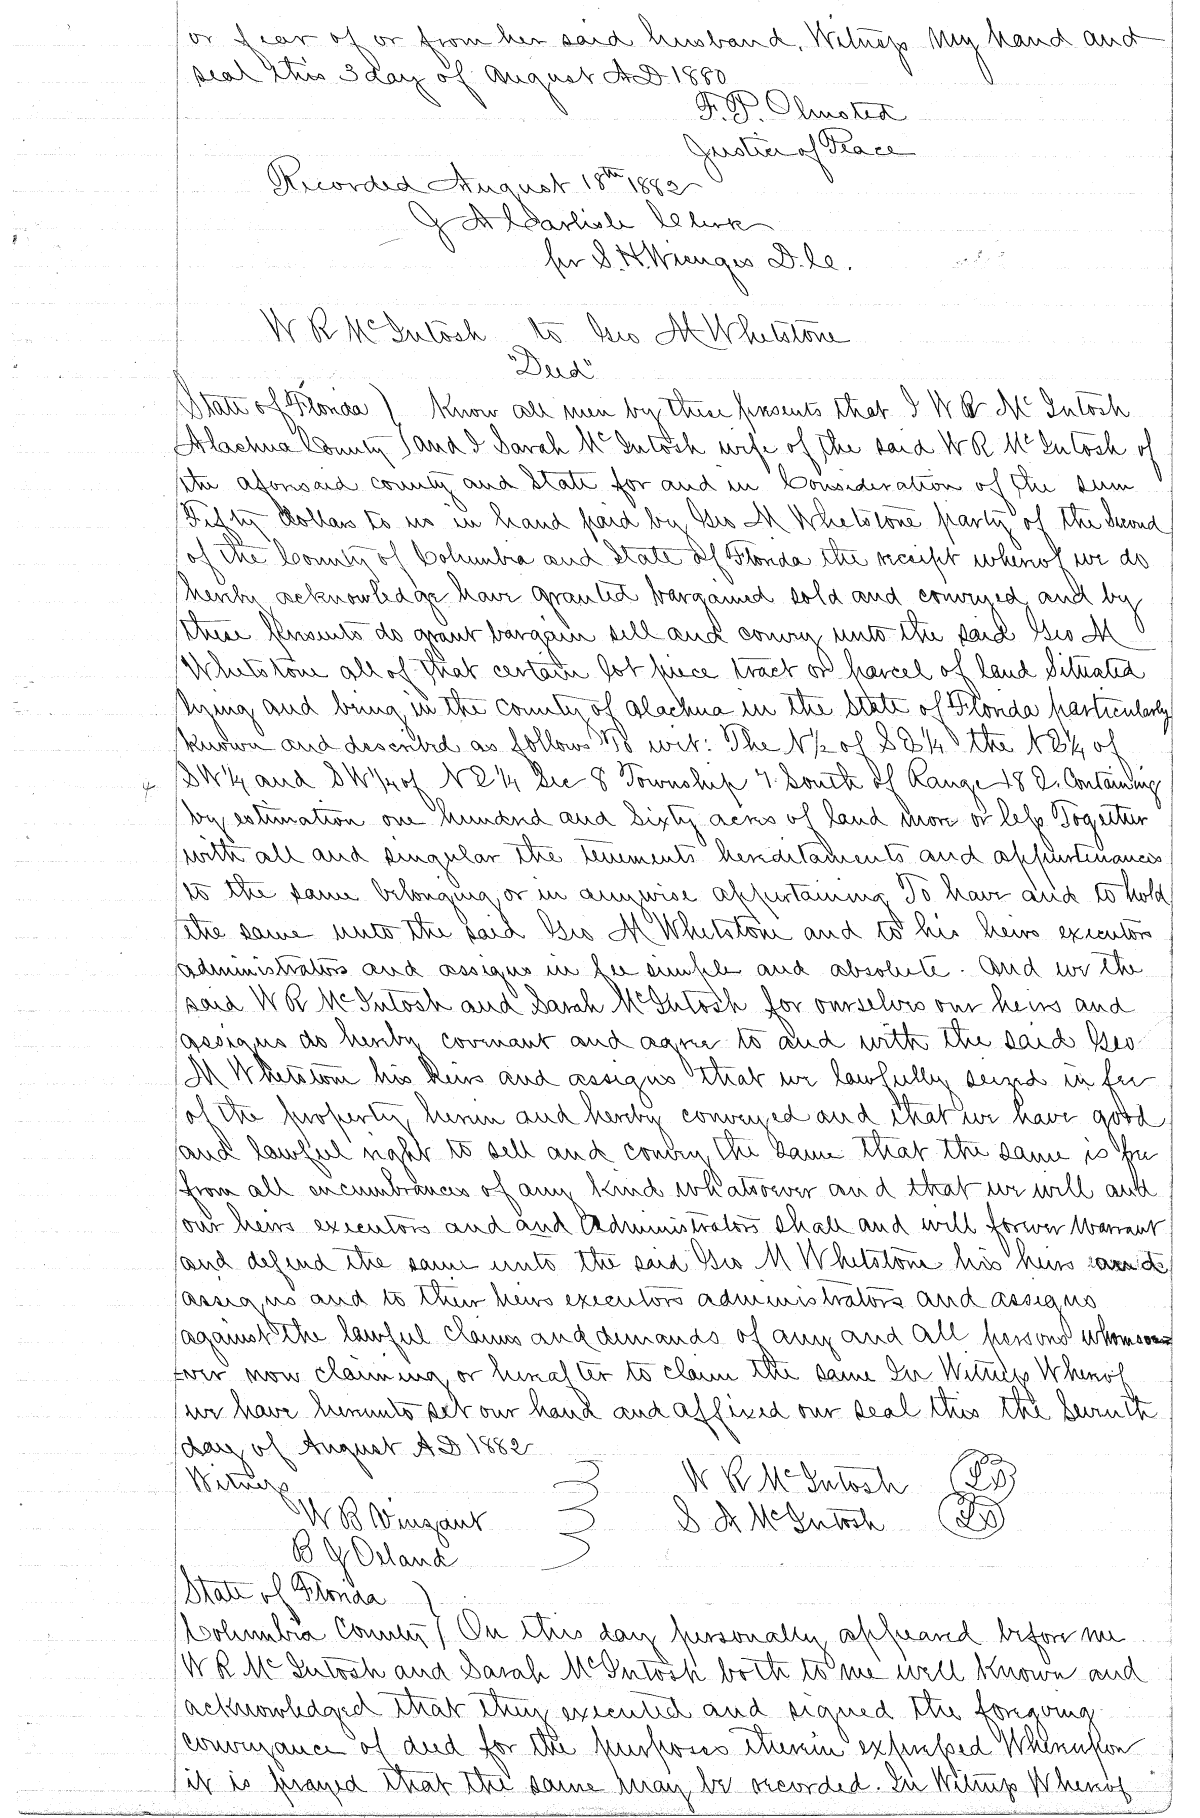 or fear of or from her said husband. Witness My hand and
seal this 3 day of August A.D. 1880
F. P. Olmsted
Justice of Peace
Recorded August 18th 1882
J A Carlisle Clerk
per S. H. Wienges D.C.
W R McIntosh to Geo M Whetstone
"Deed"
State of Florida ) Know all men by these presents that I W R McIntosh
Alachua County ) and I Sarah McIntosh wife of the said W R McIntosh of
the aforesaid county and State for and in Consideration of the sum
Fifty dollars to us in hand paid by Geo M Whetstone party of the Second
of the County of Columbia and State of Florida the receipt whereof we do
hereby acknowledge have granted bargained sold and conveyed and by
these presents do grant bargain sell and convey unto the said Geo M
Whetstone all of that certain lot piece tract or parcel of land Situated
lying and being in the county of Alachua in the State of Florida particularly
known and described as follows To wit: The N½ of SE¼ the NE¼ of
SW¼ and SW¼ of NE¼ Sec 8 Township 7 South of Range 18 E. Containing
by estimation one hundred and Sixty acres of land more or less Together
with all and singular the tenements hereditaments and appurtenances
to the same belonging or in anywise appertaining To have and to hold
the same unto the said Geo M Whetstone and to his heirs executors
administrators and assigns in fee simple and absolute. And we the
said W R McIntosh and Sarah McIntosh for ourselves our heirs and
assigns do hereby covenant and agree to and with the said Geo
M Whetstone his heirs and assigns that we lawfully seized in fee
of the property herein and hereby conveyed and that we have good
and lawful right to sell and convey the same that the same is free
from all encumbrances of any kind whatsoever and that we will and
our heirs executors and and Administrators shall and will forever Warrant
and defend the same unto the said Geo M Whetstone his heirs and
assigns and to their heirs executors administrators and assigns
against the lawful claims and demands of any and all persons whomsoe
ever now claiming or hereafter to claim the same In Witness Whereof
we have hereunto set our hand and affixed our seal this the Seventh
day of August A D 1882
Witness
W R McIntosh
W B Vinzant
S A McIntosh
B J Orland
State of Florida )
Columbia County ) On this day personally appeared before me
W R McIntosh and Sarah McIntosh both to me well known and
acknowledged that they executed and signed the foregoing
conveyance of deed for the purposes therein expressed Whereupon
it is prayed that the same may be recorded. In Witness Whereof